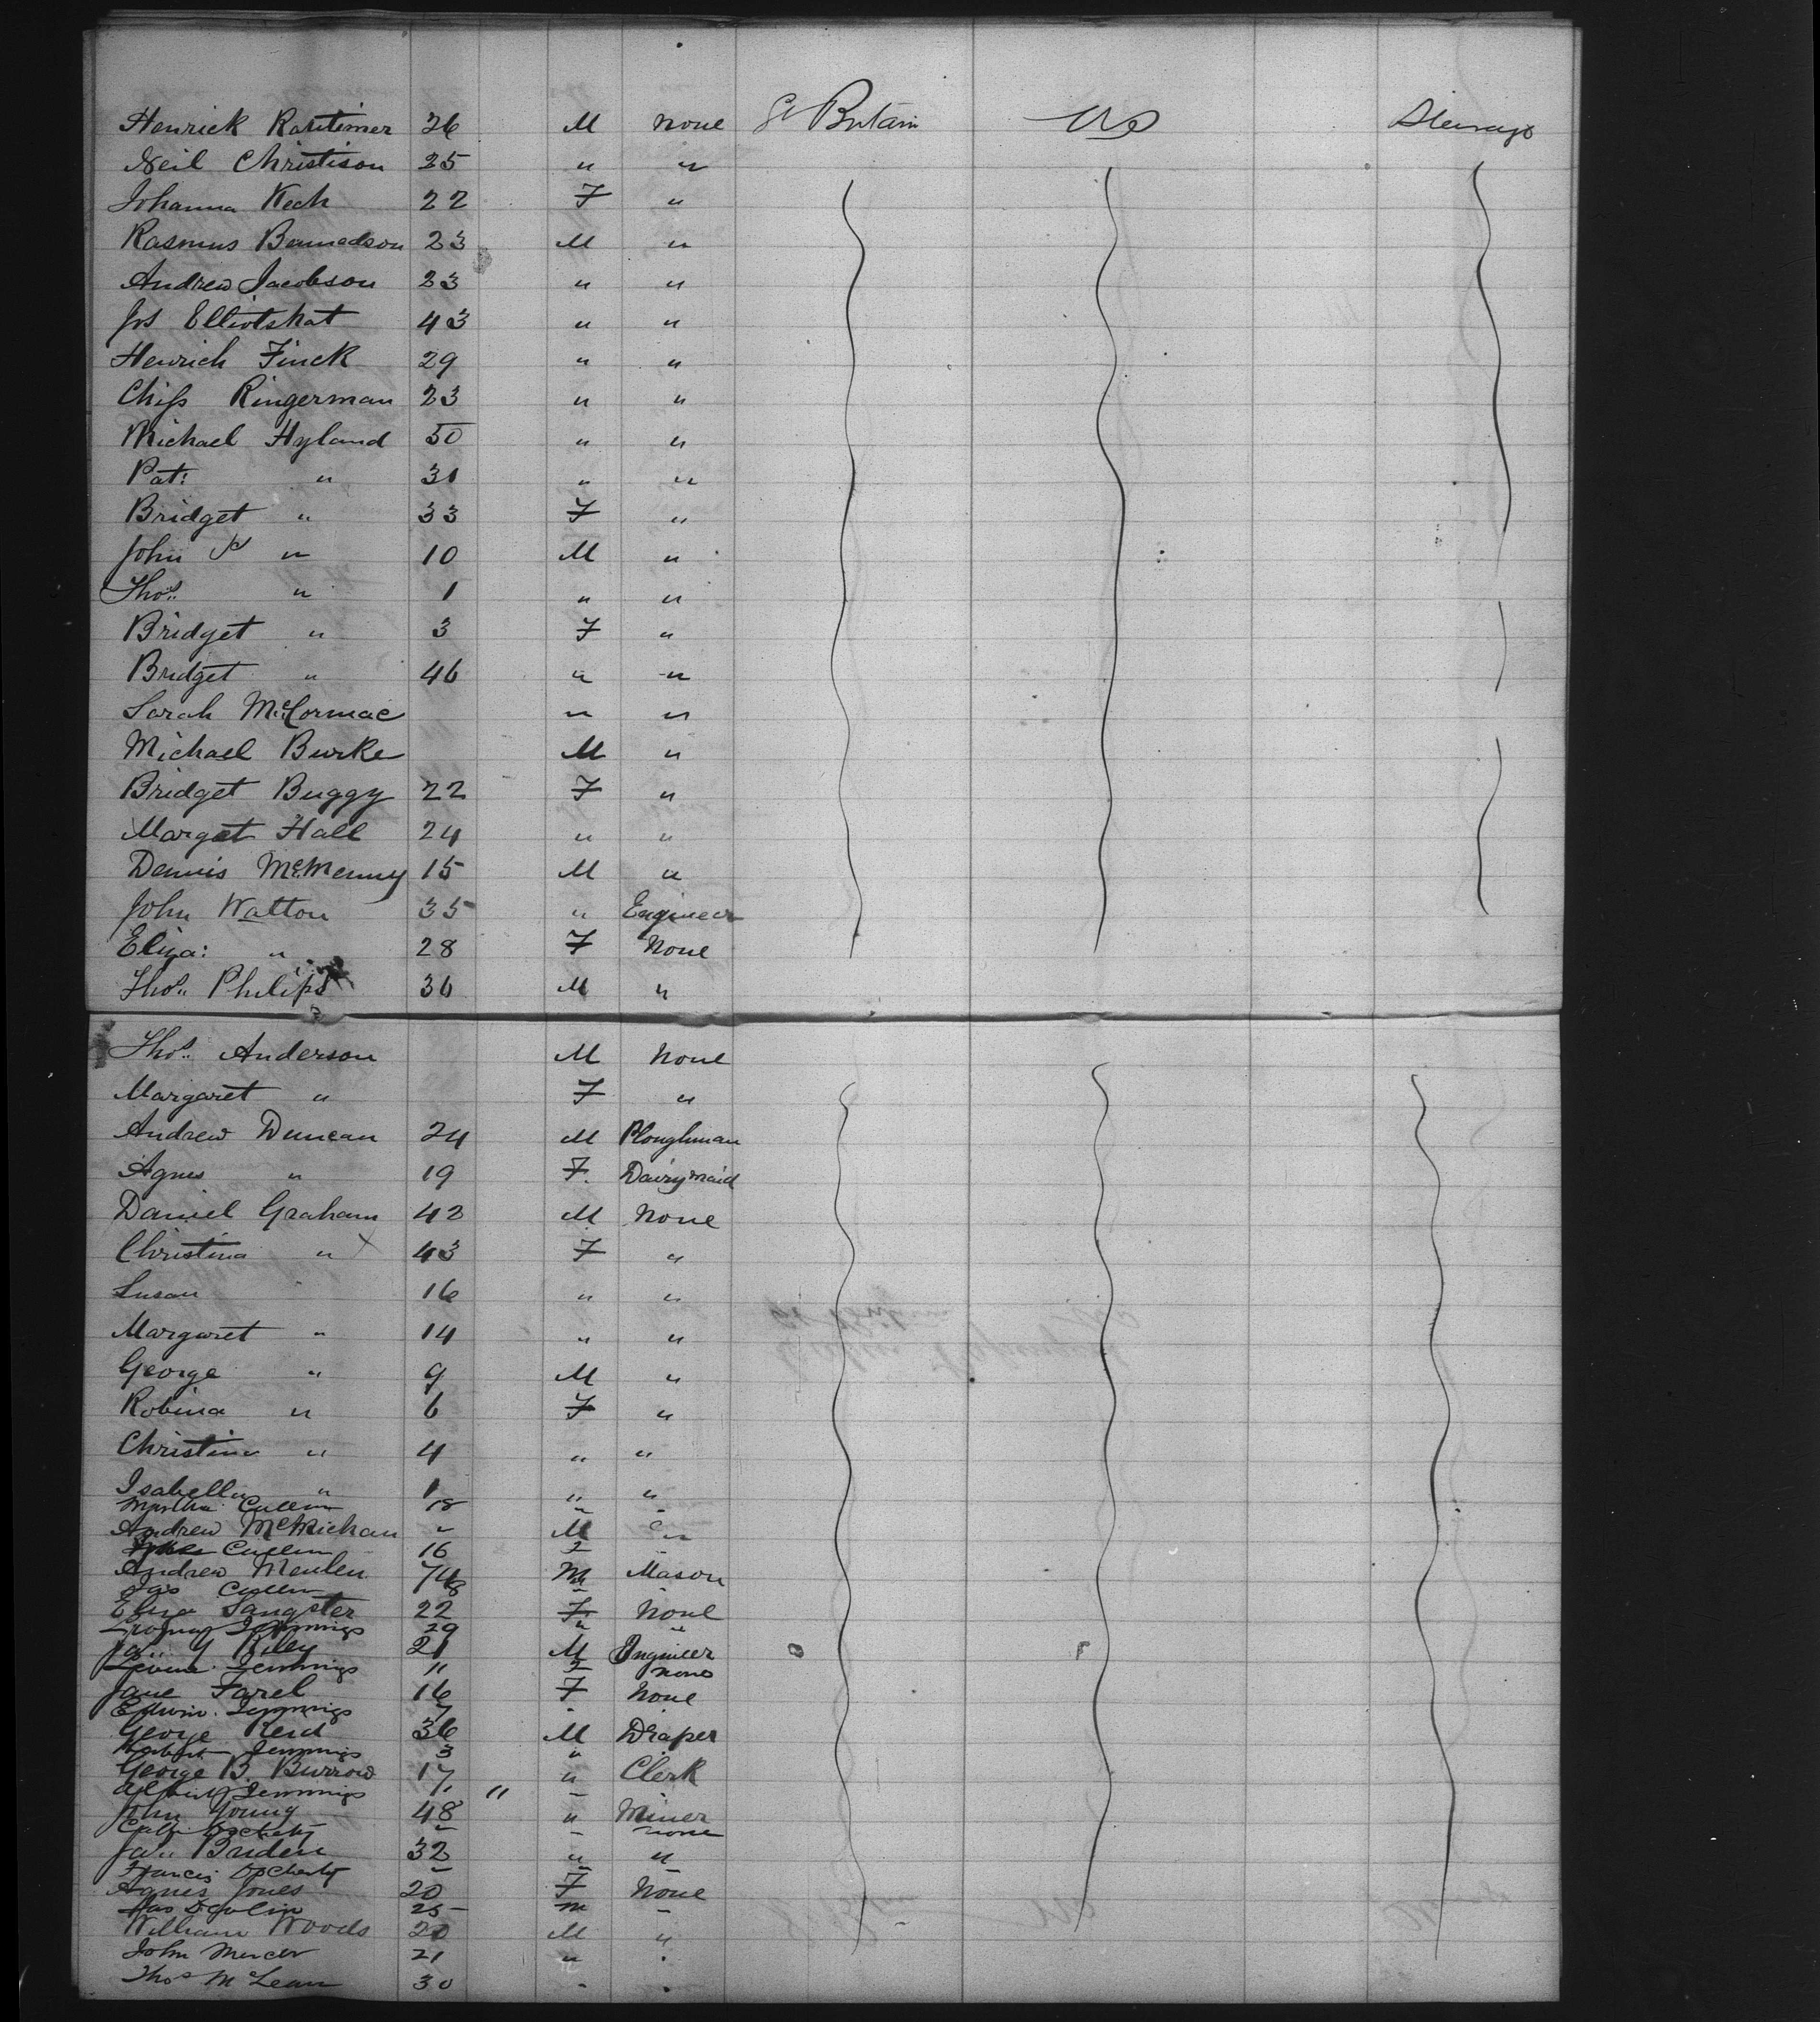 Henrick Rantimer 26 M None Gt Britain US Steerage
Neil Christison 25 " "
Johanna Kech 22 F "
Rasmus Bennedson 23 M "
Andrew Jacobson 23 " "
Jos Elliotshat 43 " "
Henrich Finck 29 " "
Chiss Ringerman 23 " "
Michael Hyland 50 " "
Pat: " 31 " "
Bridget " 33 F "
John P " 10 M "
Thos " 1 " "
Bridget " 3 F "
Bridget " 46 " "
Sarah McCormac " "
Michael Burke M "
Bridget Buggy 22 F "
Margat Hall 24 " "
Dennis McMenny 15 M "
John Watton 35 " Engineer
Eliza: " 28 F None
Thos Philips 36 M "
Thos Anderson M None
Margaret " F "
Andrew Duncan 24 M Ploughman
Agnes " 19 F Dairymaid
Daniel Graham 42 M None
Christina " X 43 F "
Susan 16 " "
Margaret " 14 " "
George " 9 M "
Robina " 6 F "
Christina " 4 " "
Isabella " 1 " "
Martha Cullen 18 " "
Andrew McMichan " M "
Cullen 16 F
Andrew Meulen 74 M Mason
Jas Cullen 8 "
Eliza Sangster 22 F None
Jennings 29 " "
Jas Y Riley 21 M Engineer
Jennings 11 F None
Jane Farel 16 F None
Edwin Jennings 7 "
George Reid 36 M Draper
Herbert Jennings 3 "
George B Burrow 17 " Clerk
Albert Jennings 1 " "
John Young 48 " Miner
Cath Docherty " " none
Jas Briden 32 " "
Francis Docherty " "
Agnes Jones 20 F None
Jas Devlin 25 M "
William Woods 20 M "
John Mercer 21 " "
Thos McLean 30 " "